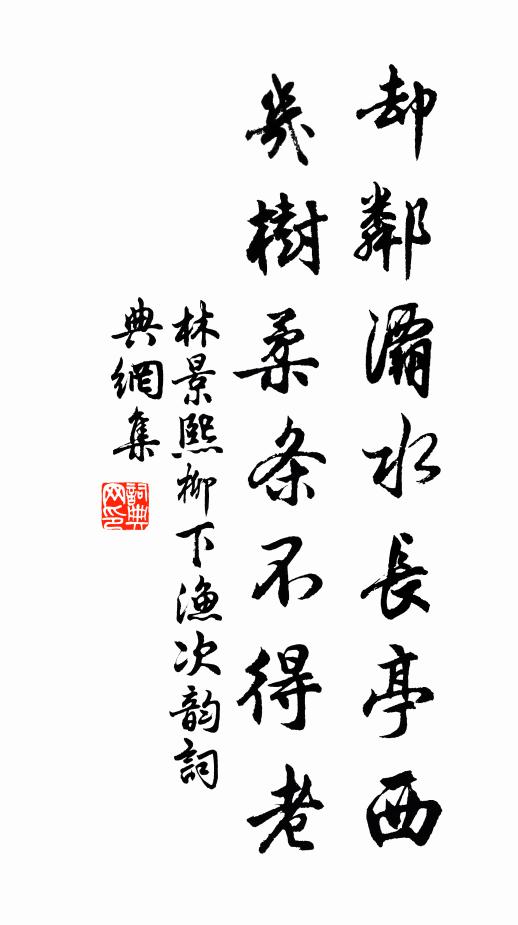 却鄰灞水長亭西
幾樹柔条不得老
林景熙柳下漁次韵詞
典網集
詞典
网印